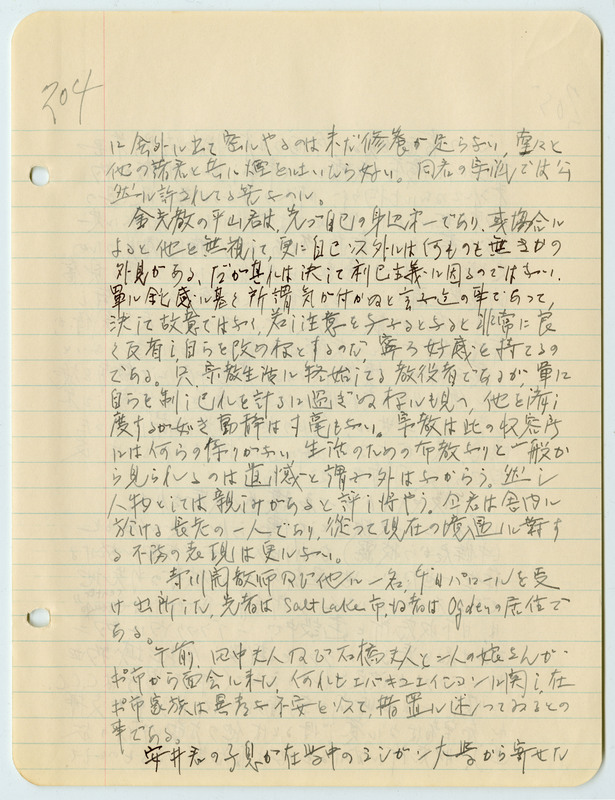 204
に舎外に出て密にやるのは未だ修養が足らない、堂々と
他の諸君と共に煙を吐いたら好い。同君の宗派では公
然に許されてる筈なのに。
金光教の平山君は、先づ自己の身辺第一であり、或場合に
よると他を無視して、更に自己以外には何ものも無きかの
外見がある、だが其れは決して利己主義に因るのではない。
単に鈍感に基く所謂気が付かぬと言ふ迄の事であって、
決して故意ではない、若し注意を与へるとすると非常に良
く反省し自らを改め様とするのだ、寧ろ好感を持てるの
である。只、宗教生活に終始してる教役者であるが、単に
自らを制し己れを計るに過ぎぬ様にも見へ、他を済
度するが如き動静は寸毫もない。宗教は此の収容所
には何らの係りがない 生活のための布教なりと一般か
ら見られるのは遺憾と謂ふ外はなからう。然し
人物としては親しみがあると評し得やう。仝君は舎内に
於ける長老の一人であり、従って現在の境遇に対す
る不満の表現は更にない。
寺川開教師及び他に一名、今日パロールを受
け出所した、先者は Salt Lake 市、後者は Ogden の居住で
ある。
午前、田中夫人及び石橋夫人と二人の娘さんが
ポ市から面会に来た、何れもエバキュエイションに関し、在
ポ市家族は異常な不安を以って、措置に迷ってゐるとの
事である。
安井君の子息が在学中のミシガン大学から寄せた